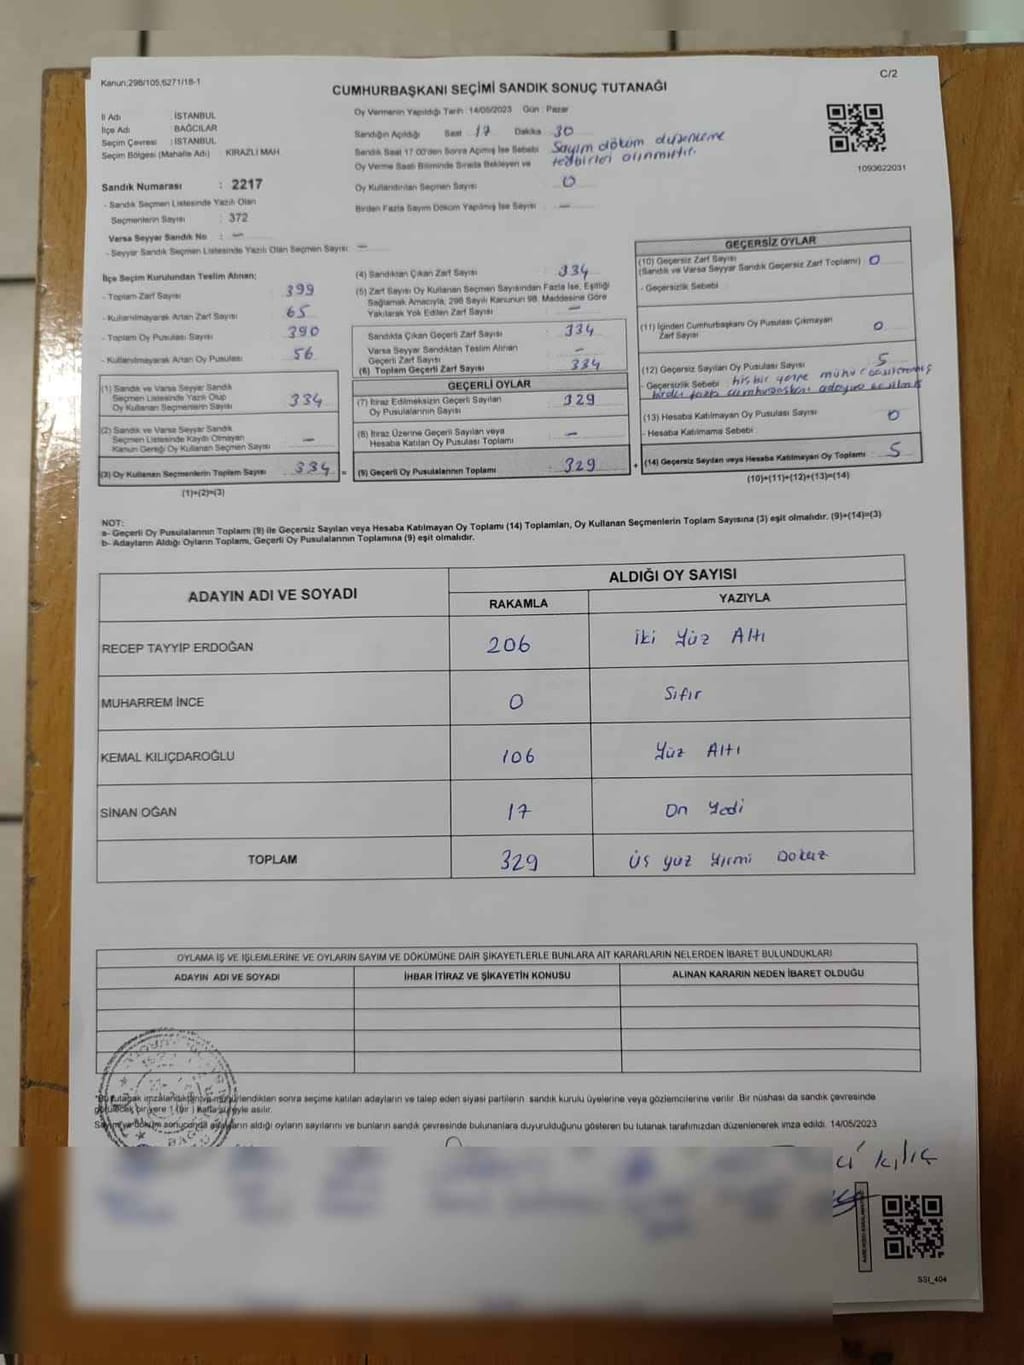 Kanun;298/105,6271/18-1
C/2
CUMHURBAŞKANI SEÇİMİ SANDIK SONUÇ TUTANAĞI
İl Adı : İSTANBUL
İlçe Adı : BAĞCILAR
Seçim Çevresi : İSTANBUL
Seçim Bölgesi (Mahalle Adı) : KİRAZLI MAH
Sandık Numarası : 2217
- Sandık Seçmen Listesinde Yazılı Olan
Seçmenlerin Sayısı : 372
Varsa Seyyar Sandık No : -
- Seyyar Sandık Seçmen Listesinde Yazılı Olan Seçmen Sayısı: -
Oy Vermenin Yapıldığı Tarih : 14/05/2023 Gün : Pazar
Sandığın Açıldığı Saat 17 Dakika 30
Sandık Saat 17.00'den Sonra Açılmış İse Sebebi Sayım döküm düzenleme
Oy Verme Saati Bitiminde Sırada Bekleyen ve tedbirleri alınmıştır.
Oy Kullandırılan Seçmen Sayısı 0
Birden Fazla Sayım Döküm Yapılmış İse Sayısı : -
1093622031
İlçe Seçim Kurulundan Teslim Alınan;
- Toplam Zarf Sayısı 399
- Kullanılmayarak Artan Zarf Sayısı 65
- Toplam Oy Pusulası Sayısı 390
- Kullanılmayarak Artan Oy Pusulası 56
(1) Sandık ve Varsa Seyyar Sandık
Seçmen Listesinde Yazılı Olup
Oy Kullanan Seçmenlerin Sayısı 334
(2) Sandık ve Varsa Seyyar Sandık
Seçmen Listesinde Kayıtlı Olmayan
Kanun Gereği Oy Kullanan Seçmen Sayısı -
(3) Oy Kullanan Seçmenlerin Toplam Sayısı 334 =
(1)+(2)=(3)
(4) Sandıktan Çıkan Zarf Sayısı 334
(5) Zarf Sayısı Oy Kullanan Seçmen Sayısından Fazla İse, Eşitliği
Sağlamak Amacıyla, 298 Sayılı Kanunun 98. Maddesine Göre
Yakılarak Yok Edilen Zarf Sayısı -
Sandıkta Çıkan Geçerli Zarf Sayısı : 334
Varsa Seyyar Sandıktan Teslim Alınan
Geçerli Zarf Sayısı -
(6) Toplam Geçerli Zarf Sayısı 334
GEÇERLİ OYLAR
(7) İtiraz Edilmeksizin Geçerli Sayılan
Oy Pusulalarının Sayısı : 329
(8) İtiraz Üzerine Geçerli Sayılan veya
Hesaba Katılan Oy Pusulası Toplamı : -
(9) Geçerli Oy Pusulalarının Toplamı : 329 +
GEÇERSİZ OYLAR
(10) Geçersiz Zarf Sayısı
(Sandık ve Varsa Seyyar Sandık Geçersiz Zarf Toplamı) 0
- Geçersizlik Sebebi :
(11) İçinden Cumhurbaşkanı Oy Pusulası Çıkmayan
Zarf Sayısı 0
(12) Geçersiz Sayılan Oy Pusulası Sayısı 5
- Geçersizlik Sebebi hiçbir yere mühür basılmamış
birden fazla cumhurbaşkanı adayına
(13) Hesaba Katılmayan Oy Pusulası Sayısı 0
- Hesaba Katılmama Sebebi :
(14) Geçersiz Sayılan veya Hesaba Katılmayan Oy Toplamı 5
(10)+(11)+(12)+(13)=(14)
NOT:
a- Geçerli Oy Pusulalarının Toplamı (9) ile Geçersiz Sayılan veya Hesaba Katılmayan Oy Toplamı (14) Toplamları, Oy Kullanan Seçmenlerin Toplam Sayısına (3) eşit olmalıdır. (9)+(14)=(3)
b- Adayların Aldığı Oyların Toplamı, Geçerli Oy Pusulalarının Toplamına (9) eşit olmalıdır.
ADAYIN ADI VE SOYADI ALDIĞI OY SAYISI
RAKAMLA YAZIYLA
RECEP TAYYİP ERDOĞAN 206 İki Yüz Altı
MUHARREM İNCE 0 Sıfır
KEMAL KILIÇDAROĞLU 106 Yüz Altı
SİNAN OĞAN 17 On Yedi
TOPLAM 329 Üs yüz yirmi Dokuz
OYLAMA İŞ VE İŞLEMLERİNE VE OYLARIN SAYIM VE DÖKÜMÜNE DAİR ŞİKAYETLERLE BUNLARA AİT KARARLARIN NELERDEN İBARET BULUNDUKLARI
ADAYIN ADI VE SOYADI İHBAR İTİRAZ VE ŞİKAYETİN KONUSU ALINAN KARARIN NEDEN İBARET OLDUĞU
sonra seçime katılan adayların ve talep eden siyasi partilerin sandık kurulu üyelerine veya gözlemcilerine verilir. Bir nüshası da sandık çevresinde
1 (Bir) hafta süreyle asılır.
aldığı oyların sayılarını ve bunların sandık çevresinde bulunanlara duyurulduğunu gösteren bu tutanak tarafımızdan düzenlenerek imza edildi. 14/05/2023
kılıç
SSI_404